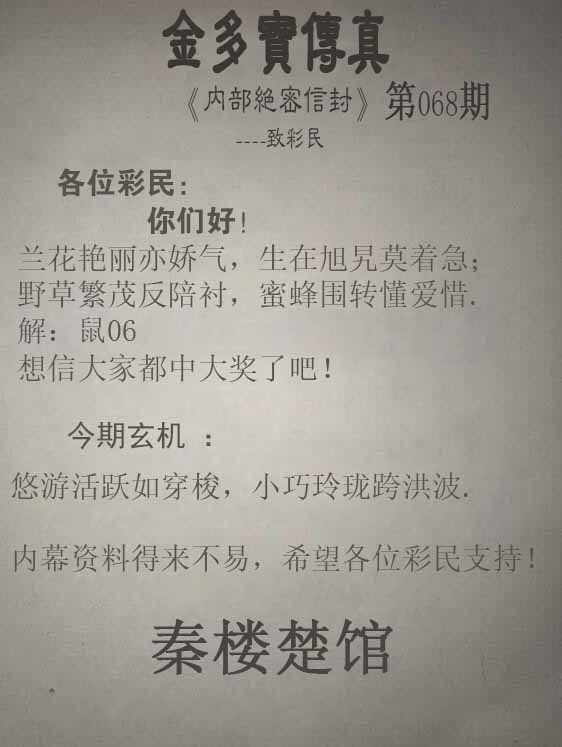 金多寶傳真
《内部絶密信封》第068期
----致彩民
各位彩民:
你们好!
兰花艳丽亦娇气，生在旭旯莫着急;
野草繁茂反陪衬，蜜蜂围转懂爱惜.
解：鼠06
想信大家都中大奖了吧!
今期玄机 :
悠游活跃如穿梭，小巧玲珑跨洪波.
内幕资料得来不易，希望各位彩民支持!
秦楼楚馆